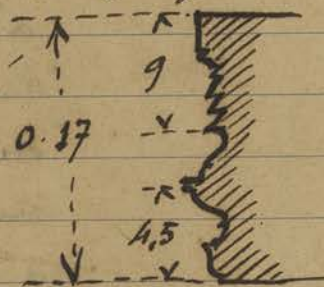 9
0.17
4,5